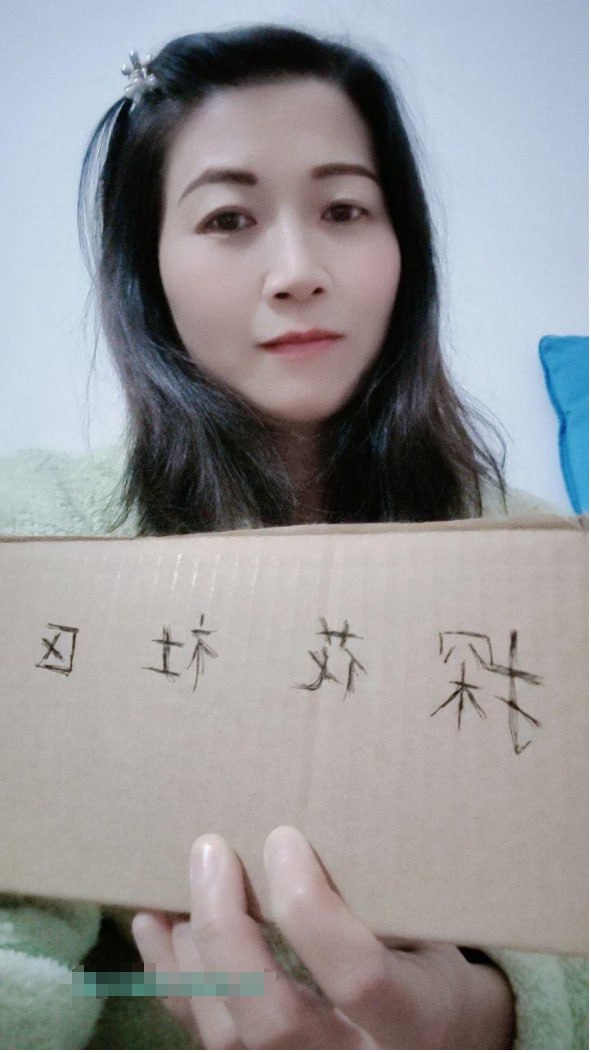 探花社区